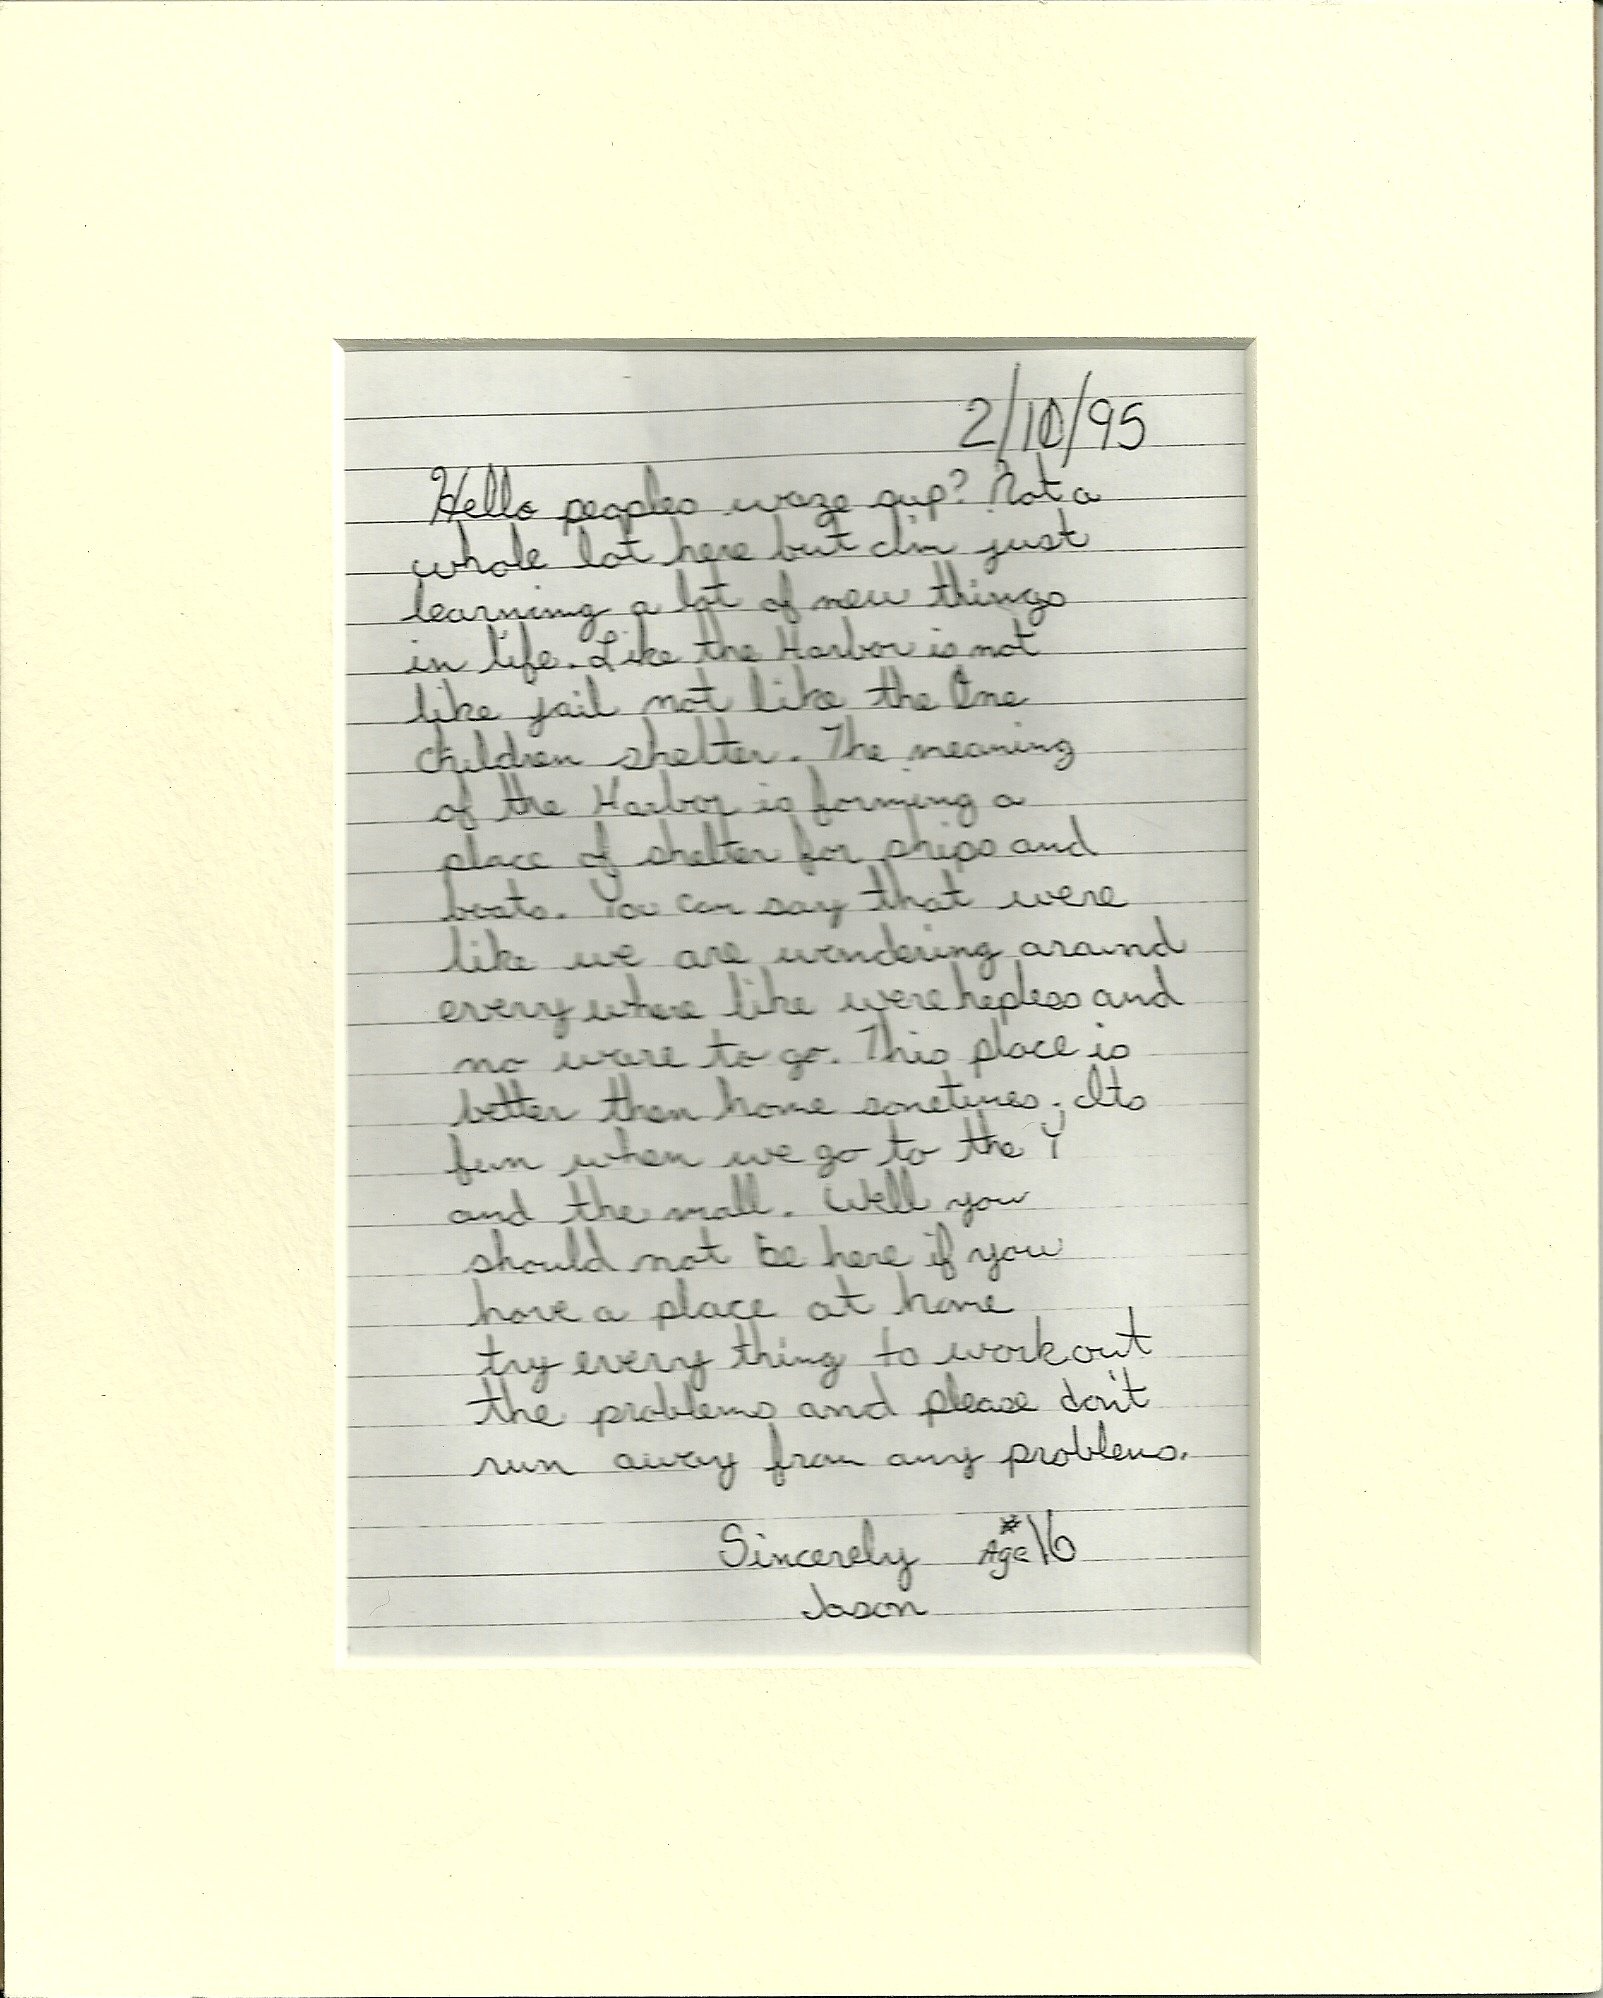 2/10/95
Hello peoples waze sup? Not a
whole lot here but I'm just
learning a lot of new things
in life. Like the Harbor is not
like jail not like the One
children shelter. The meaning
of the Harbor is forming a
place of shelter for ships and
boats. You can say that were
like we are wendering around
every where like were hepless and
no ware to go. This place is
better then home sometimes. Its
fun when we go to the Y
and the mall. Well you
should not be here if you
have a place at home
try every thing to work out
the problems and please don't
run away from any problems.
Sincerely Age #16
Jason